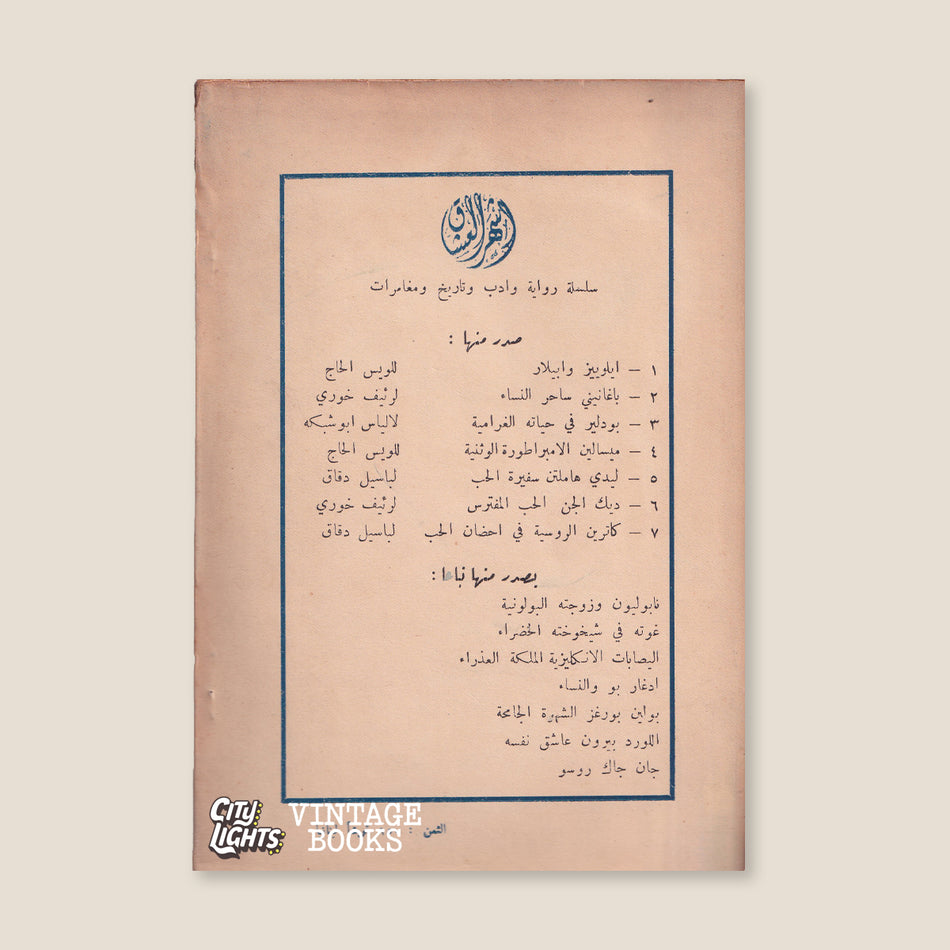 اشهر العشاق
سلسلة رواية وادب وتاريخ ومغامرات
صدر منها :
١ — ايلوييز وابيلار للويس الحاج
٢ — باغانيني ساحر النساء لرئيف خوري
٣ — بودلير في حياته الغرامية لالياس ابوشبكه
٤ — ميسالين الامبراطورة الوثنية للويس الحاج
٥ — ليدي هاملتن سفيرة الحب لباسيل دقاق
٦ — ديك الجن الحب المفترس لرئيف خوري
٧ — كاترين الروسية في احضان الحب لباسيل دقاق
يصدر منها تباعا :
نابوليون وزوجته البولونية
غوته في شيخوخته الخضراء
اليصابات الانكليزية الملكة العذراء
ادغار بو والنساء
بولين بورغز الشهوة الجامحة
اللورد بيرون عاشق نفسه
جان جاك روسو
الثمن :
CITY LIGHTS VINTAGE BOOKS